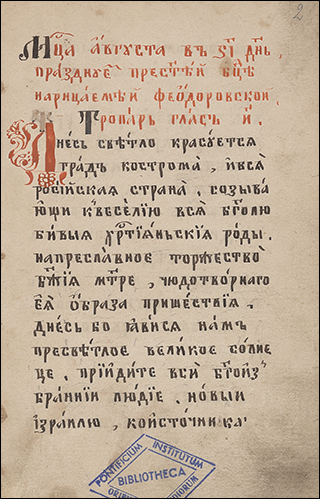 2
Мц҃а а҆́вгꙋста въ ѕ҃і дн҃ь,
пра́зднꙋемъ престѣ́й бц҃ѣ
нарица́емѣй ѳео́доровской
Тропа́рь гла́съ и҃.
Дне́сь свѣ́тло красꙋ́ется
гра́дъ кострома̀, и҆ вся̀
росі́йская страна̀, созыва́
ющи к̾весе́лїю вся̀ бг҃олю
би́выя хрⷭ҇тїя́ньскїя ро́ды.
на пресла́вное торжество̀
бж҃їя мт҃ре, чюдотво́рнаго
е҆я̀ о҆́браза прише́ствїя.
дне́сь бо ꙗ҆ви́ся на́мъ
пресвѣ́тлое вели́кое со́лне
це, прїиди́те всѝ бг҃оиз̾
бра́ннїи лю́дїе, но́выи
і҆зра́илю, ко и҆сто́чникꙋ
PONTIFICIUM INSTITUTUM
BIBLIOTHECA